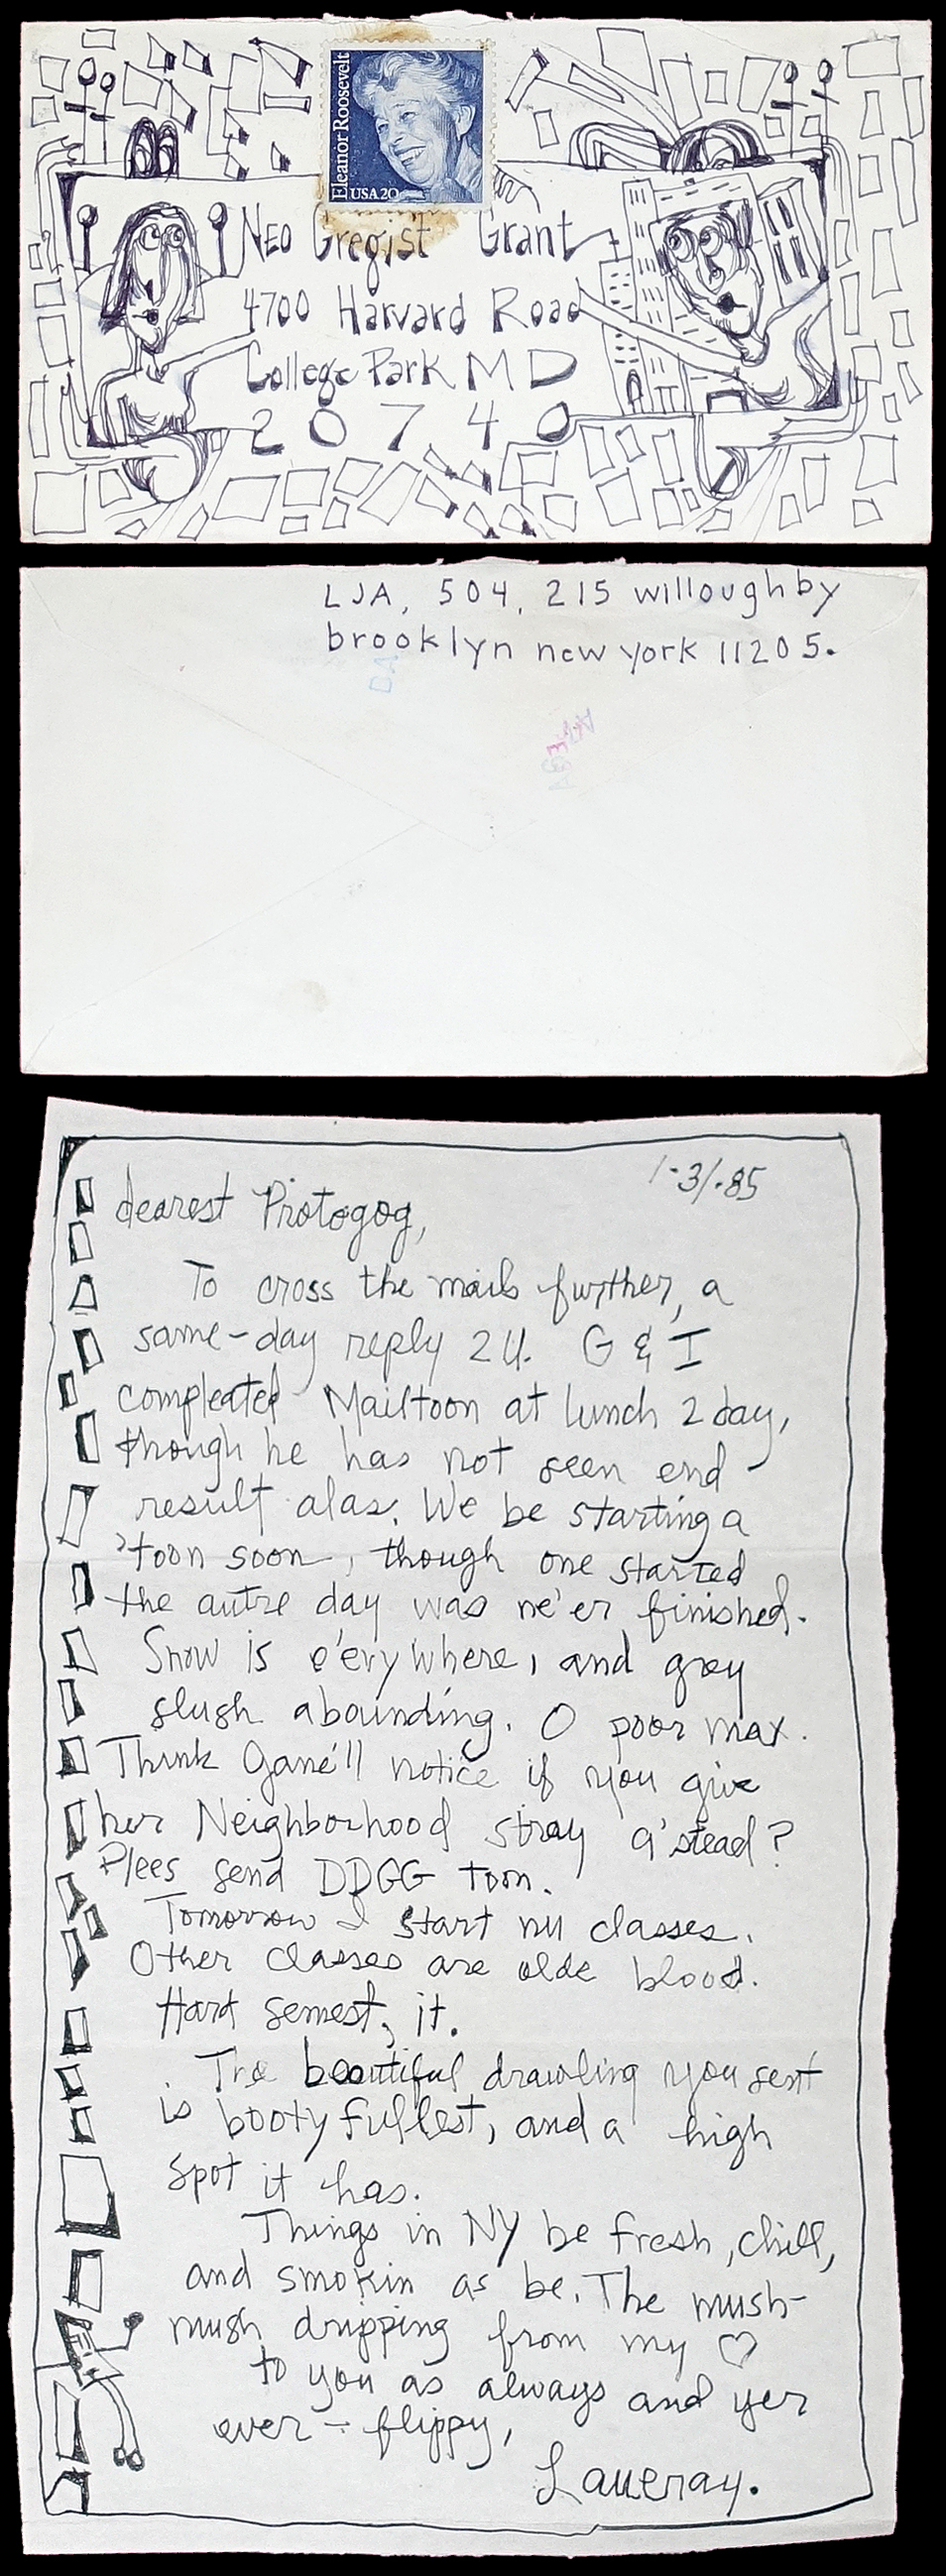 Eleanor Roosevelt
USA 20
Neo Gregist Grant
4700 Harvard Road
College Park MD
20740
LJA, 504, 215 willoughby
brooklyn new york 11205.
1-31-85
dearest Protogog,
To cross the mails further, a
same-day reply 2U. G & I
compleated Mailtoon at lunch 2day,
though he has not seen end
result alas. We be starting a
'toon soon, though one started
the autre day was ne'er finished.
Snow is e'erywhere, and grey
slush abounding. O poor max.
Think Gane'll notice if you give
her Neighborhood stray a'stead?
Plees send DDGG toon.
Tomorrow I start nu classes.
Other classes are olde blood.
Hard semest, it.
The beautiful drawling you sent
is bootyfullest, and a high
spot it has.
Things in NY be fresh, chill,
and smokin as be. The mush-
mush dripping from my ♡
to you as always and yer
ever-flippy,
Laueray.